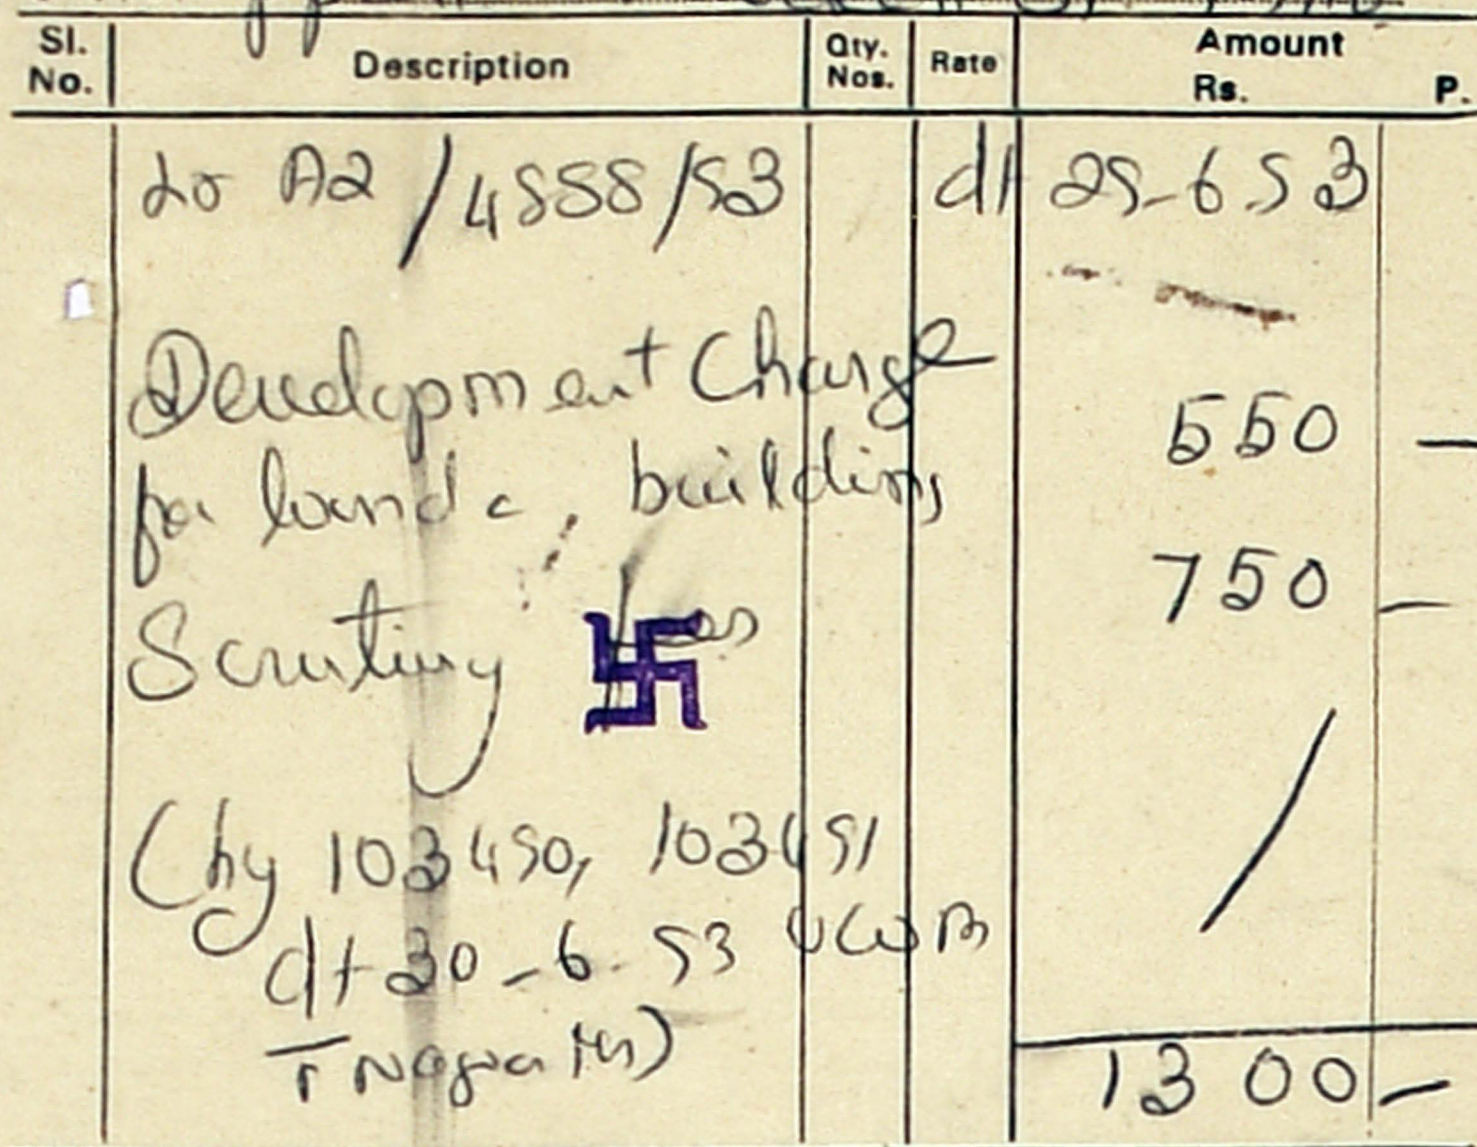 Sl. No. Description Qty. Nos. Rate Amount Rs. P.
Lr A2 /4558/93 dt 25-6.93
Development Charge
for land & building 550 —
Scrutiny Fees 750 —
(hq 103490, 103491
dt 30-6-93 UCO B
T Nagar
1300 —